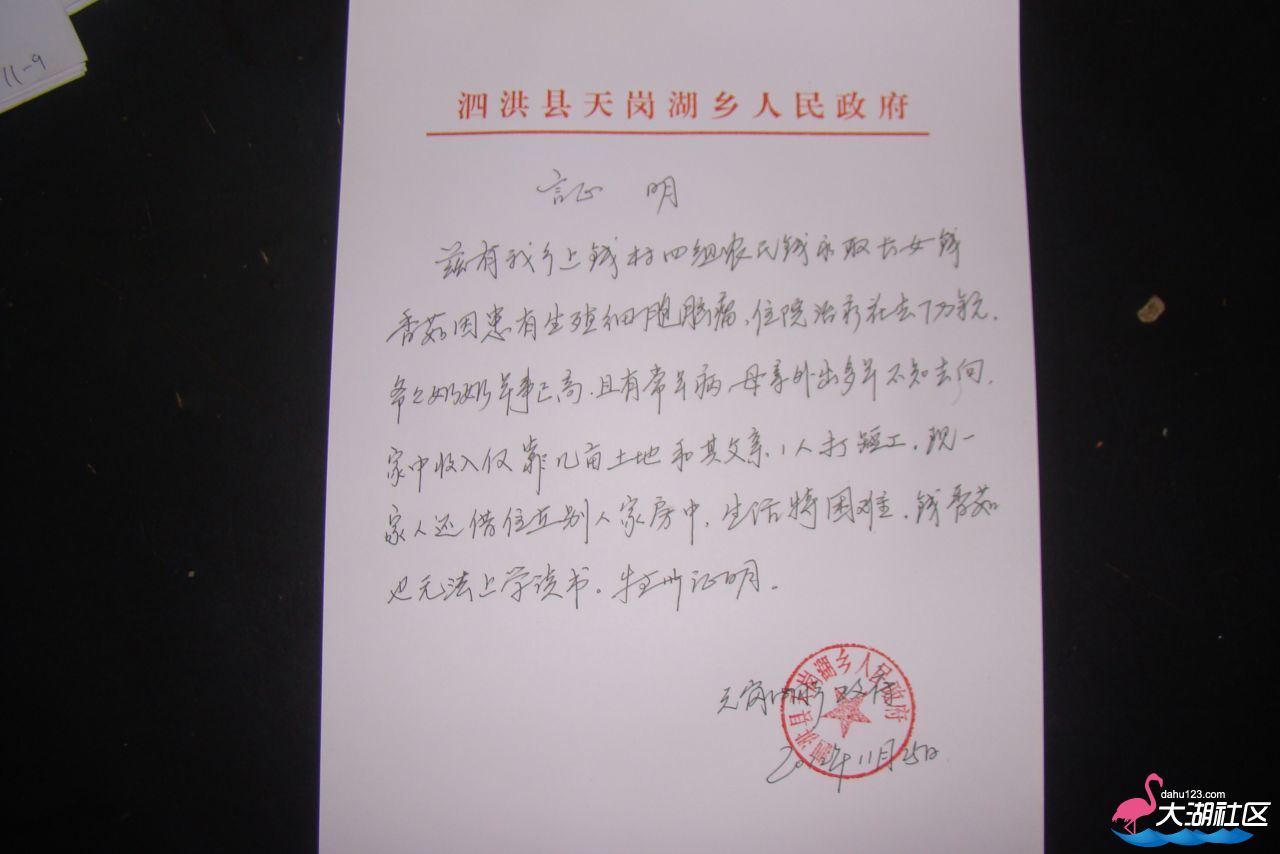 11-9
泗洪县天岗湖乡人民政府
证 明
兹有我乡上钱村四组农民钱永取长女钱
香茹因患有生殖细胞肿瘤、住院治疗花去7万余元.
爷爷奶奶年事已高.且有常年病,母亲外出多年不知去向.
家中收入仅靠几亩土地和其父亲1人打短工.现一
家人还借住在别人家房中,生活特困难.钱香茹
也无法上学读书。特此证明.
天岗湖乡政府
泗洪县天岗湖乡人民政府
2012年11月25日
dahu123.com
大湖社区